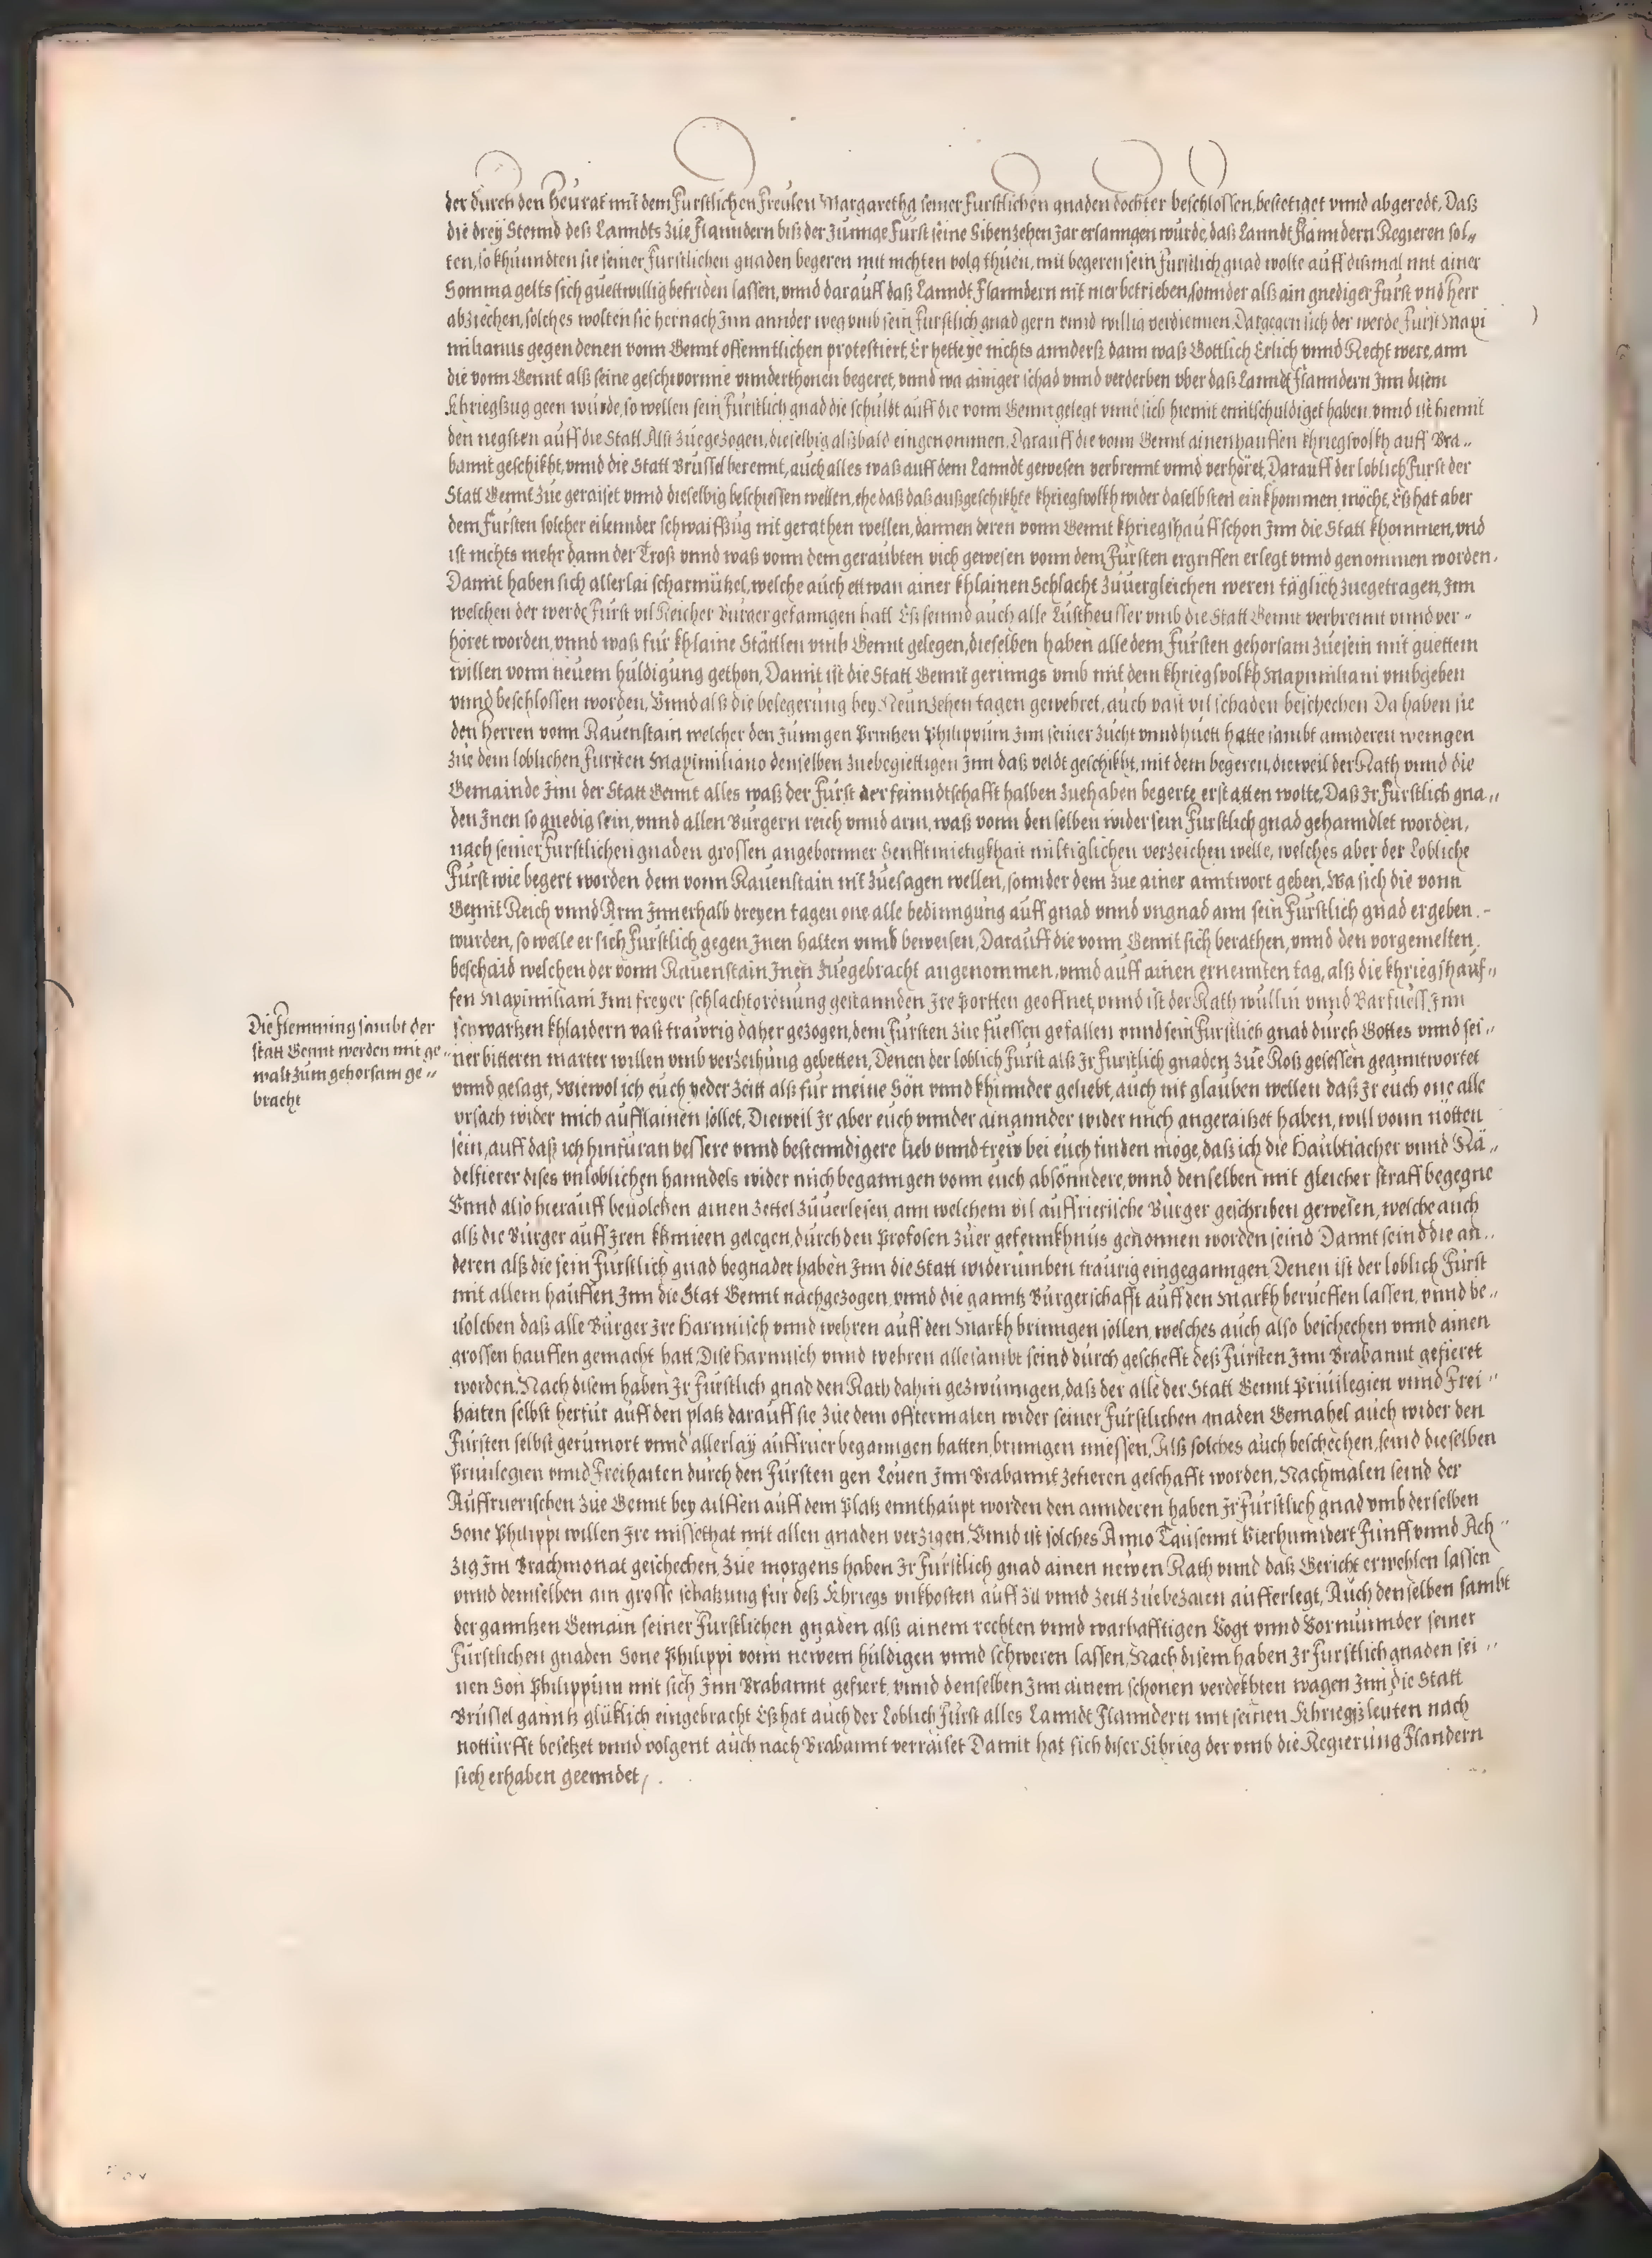 der durch den Heurat mit dem Furstlichen Freulen Margaretha seiner Furstlichen gnaden dochter beschlossen, bestetiget vnnd abgeredt, Daß
die drey Stennd deß Lanndts zúe Flanndern biß der Junnge Furst seine Sibenzehen Jar erlanngen wúrde, daß Lanndt Flanndern Regieren sol„
ten, so khúnndten sie seiner Furstlichen gnaden begeren mit nichten volg thúen, mit begeren sein Furstlich gnad wolte auff dißmal mit ainer
Somma gelts sich guettwillig befriden lassen, vnnd darauff daß Lanndt Flanndern nit mer betrieben, sonnder alß ain gnediger Furst vnd Herr
abziechen, solches wolten sie hernach Jnn annder weg vmb sein Furstlich gnad gern vnnd willig verdiennen. Dargegen sich der werde Fúrst Maxi
milianus gegen denen vonn Gennt offenntlichen protestiert, Er hette ye nichts annderß dann waß Gottlich Erlich vnnd Recht were, ann
die vonn Gennt alß seine geschworne vnnderthonen begeret, vnnd wa ainiger schad vnnd verderben vber daß Lanndt Flanndern Jnn disem
Khriegßzug geen wúrde, so wellen sein Fúrstlich gnad die schuldt auff die vonn Gennt gelegt vnnd sich hiemit enntschuldiget haben, vnnd ist hiemit
den negsten auff die Statt Alst zúegezogen, dieselbig alßbald eingenommen. Darauff die vonn Gennt ainen hauffen khriegsvolkh auff Bra„
bannt geschikht, vnnd die Statt Brússel berennt, auch alles waß auff dem Lanndt gewesen verbrennt vnnd verhöret, Darauff der loblich Furst der
Statt Gennt zúe geraiset vnnd dieselbig beschiessen wellen, ehe daß daß außgeschikhte khriegsvolkh wider daselbsten einkhommen möcht, Eß hat aber
dem Fúrsten solcher eilennder schwaiffzúg nit gerathen wellen, dannen deren vonn Gennt khriegshauff schon Jnn die Statt khommen, vnd
ist nichts mehr dann der Troß vnnd waß vonn dem geraubten vich gewesen vonn dem Fúrsten ergriffen erlegt vnnd genommen worden.
Damit haben sich allerlai scharmützel, welche auch ettwan ainer khlainen Schlacht zúuergleichen weren täglich zuegetragen, Jnn
welchen der werde Fúrst vil Reicher Búrger gefanngen hatt Eß seinnd auch alle Lústheusser vmb die Statt Gennt verbrennt vnnd ver„
höret worden, vnnd waß für khlaine Stättlen vmb Gennt gelegen, dieselben haben alle dem Fúrsten gehorsam zúesein mit guettem
willen vonn neuem huldigúng gethon, Damit ist die Statt Gennt gerinngs vmb mit dem khriegsvolkh Maximiliani vmbgeben
vnnd beschlossen worden, Vnnd alß die belegerúng bey Neunzehen tagen gewehret, auch vast vil schaden beschechen Da haben sie
den Herren vonn Rauenstain welcher den Júnngen Printzen Philippúm Jnn seiner zúcht vnnd húett hatte sambt annderen wenigen
zúe dem loblichen Fúrsten Maximiliano denselben zuebegiettigen Jnn daß veldt geschikht, mit dem begeren, dieweil der Rath vnnd die
Gemainde Jnn der Statt Gennt alles waß der Fúrst der feinndtschafft halben zuehaben begerte, erstatten wolte, Daß Jr Fúrstlich gna„
den Jnen so gnedig sein, vnnd allen Búrgern reich vnnd arm, waß vonn denselben wider sein Furstlich gnad gehanndlet worden,
nach seiner Furstlichen gnaden grossen angebornner Senfftmietigkhait miltiglichen verzeichen welle, welches aber der Lobliche
Fúrst wie begert worden dem vonn Rauenstain nit zúesagen wellen, sonnder dem zúe ainer anntwort geben, Wa sich die vonn
Gennt Reich vnnd Arm Jnnerhalb dreyen tagen one alle bedinngúng auff gnad vnnd vngnad ann sein Fúrstlich gnad ergeben
wurden, so welle er sich Fúrstlich gegen Jnen halten vnnd beweisen, Darauff die vonn Gennt sich berathen, vnnd den vorgemelten
beschaid welchen der vonn Rauenstain Jnen zúegebracht angenommen, vnnd auff ainen ernennten tag, alß die khriegshauf„
fen Maximiliani Jnn freyer schlachtordnúng gestannden Jre portten geoffnet, vnnd ist der Rath wúllin vnnd Barfuess Jnn
schwartzen khlaidern vast traúrig daher gezogen, dem Fúrsten zúe fúessen gefallen vnnd sein Fúrstlich gnad durch Gottes vnnd sei„
ner bitteren marter willen vmb verzeihúng gebetten, Denen der loblich Fúrst alß Jr Furstlich gnaden zúe Roß gesessen geanntwortet
vnnd gesagt, Wiewol ich euch yeder zeitt alß für meine Sön vnnd khinnder geliebt, auch nit glauben wellen daß Jr euch one alle
vrsach wider mich aufflainen sollet, Dieweil Jr aber euch vnnder ainannder wider mich angeraitzet haben, will vonn nötten
sein, auff daß ich hinfúran bessere vnnd bestenndigere lieb vnnd trew bei euch finden möge, daß ich die Haubtsacher vnnd Rä„
delfierer dises vnloblichen hanndels wider mich beganngen vonn euch absönndere, vnnd denselben mit gleicher straff begegne
Vnnd also hierauff beuolchen ainen zettel zúuerlesen, ann welchem vil auffrierische Búrger geschriben gewesen, welche auch
alß die Búrger auff Jren khnieen gelegen, dúrch den Profosen zúer gefennkhnus genommen worden seind Damit seind die an„
deren alß die sein Fúrstlich gnad begnadet haben Jnn die Statt widerúmben traúrig eingeganngen, Denen ist der loblich Fúrst
mit allem hauffen Jnn die Stat Gennt nachgezogen, vnnd die ganntz Búrgerschafft auff den Markh berúeffen lassen, vnnd be„
uolchen daß alle Búrger Jre Harnnisch vnnd wehren auff den Markh brinngen sollen, welches auch also beschechen vnnd ainen
grossen hauffen gemacht hatt, Dise Harnnisch vnnd wehren allesambt seind dúrch geschefft deß Fúrsten Jnn Brabannt gefieret
worden. Nach disem haben Jr Fúrstlich gnad den Rath dahin gezwúnngen, daß der alle der Statt Gennt Priuilegien vnnd Frei„
haiten selbst herfür auff den platz darauff sie zúe dem offtermalen wider seiner Fúrstlichen gnaden Gemahel auch wider den
Fúrsten selbst gerúmort vnnd allerlay auffrúer beganngen hatten, brinngen miessen, Alß solches auch beschechen, seind dieselben
Priuilegien vnnd Freihaiten durch den Fúrsten gen Löuen Jnn Brabannt zefieren geschafft worden, Nachmalen seind der
Auffruerischen zúe Gennt bey ailffen auff dem Platz ennthaupt worden den annderen haben Jr Fúrstlich gnad vmb derselben
Sone Philippi willen Jre missethat mit allen gnaden verzigen. Vnnd ist solches Anno Taúsennt Vierhunndert Fünff vnnd Ach„
zig Jm Brachmonat geschechen, Zúe morgens haben Jr Fúrstlich gnad ainen newen Rath vnnd daß Gericht erwehlen lassen
vnnd demselben ain grosse schatzung für deß Khriegs vnkhosten auff zil vnnd zeitt zúebezalen aufferlegt, Auch denselben sambt
der ganntzen Gemain seiner Furstlichen gnaden alß ainem rechten vnnd warhafftigen Vogt vnnd Vormúnnder seiner
Fúrstlichen gnaden Sone Philippi vonn newem húldigen vnnd schweren lassen, Nach disem haben Jr Furstlich gnaden sei„
nen Son Philippúm mit sich Jnn Brabannt gefiert, vnnd denselben Jnn ainem schonen verdekhten wagen Jnn die Statt
Brússel ganntz glüklich eingebracht Eß hat auch der Loblich Fúrst alles Lanndt Flanndern mit seinen Khriegßleuten nach
nottúrfft besetzet vnnd volgent auch nach Brabannt verraiset Damit hat sich diser Khrieg der vmb die Regierúng Flandern
sich erhaben geenndet,
Die Flemming sambt der
statt Gennt werden mit ge„
walt zúm gehorsam ge„
bracht